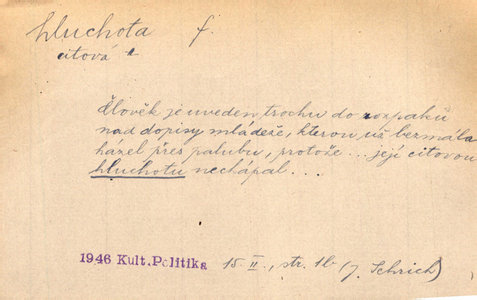 hluchota f.
citová
Člověk je uveden trochu do rozpaků
nad dopisy mládeže, kterou už bezmála
házel přes palubu, protože ... její citovou
hluchotu nechápal ...
1946 Kult. Politika 15. II., str. 1b (J. Schrich)